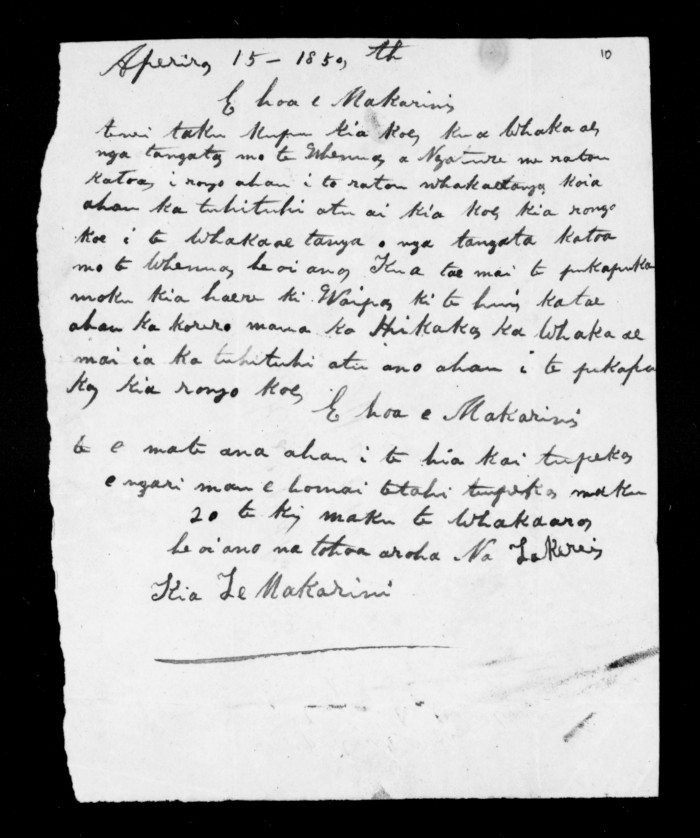 Aperira 15 - 1850, th
10
E hoa e Makarini
tenei taku kupu kia koe, kua whakaae
nga tangata mo te Whenua a Ngature me ratou
katoa, i rongo ahau i to ratou whakaaetanga koia
ahau ka tuhituhi atu ai kia koe kia rongo
koe i te whakaae tanga o nga tangata katoa
mo te Whenua, heoi ano, Kua tae mai te pukapuka
moku kia haere ki Waipa, ki te hui, ka tae
ahau ka korero mana ka Hikaka, ka whaka ae
mai ia ka tuhituhi atu ano ahau i te pukapu
ka kia rongo koe,
E hoa e Makarini
te e mate ana ahau i te hia kai tupeka
e ngari mau e homai tetahi tupeka maku
20 te kij maku te whakaaro
he oi ano na to hoa aroha Na
Kia Te Makarini